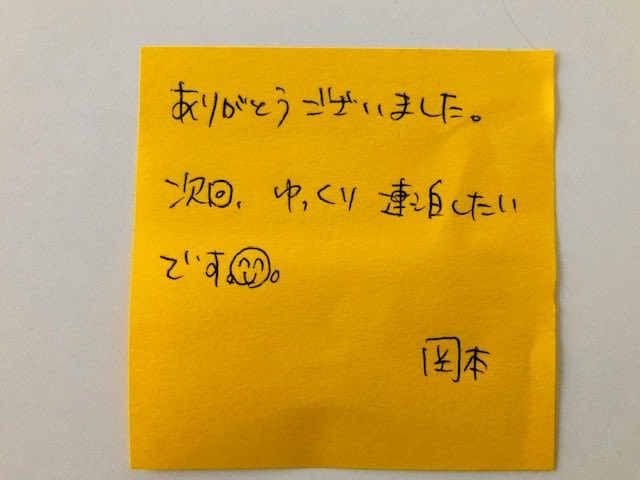 ありがとうございました。
次回、ゆっくり連泊したい
です。😊。
岡本